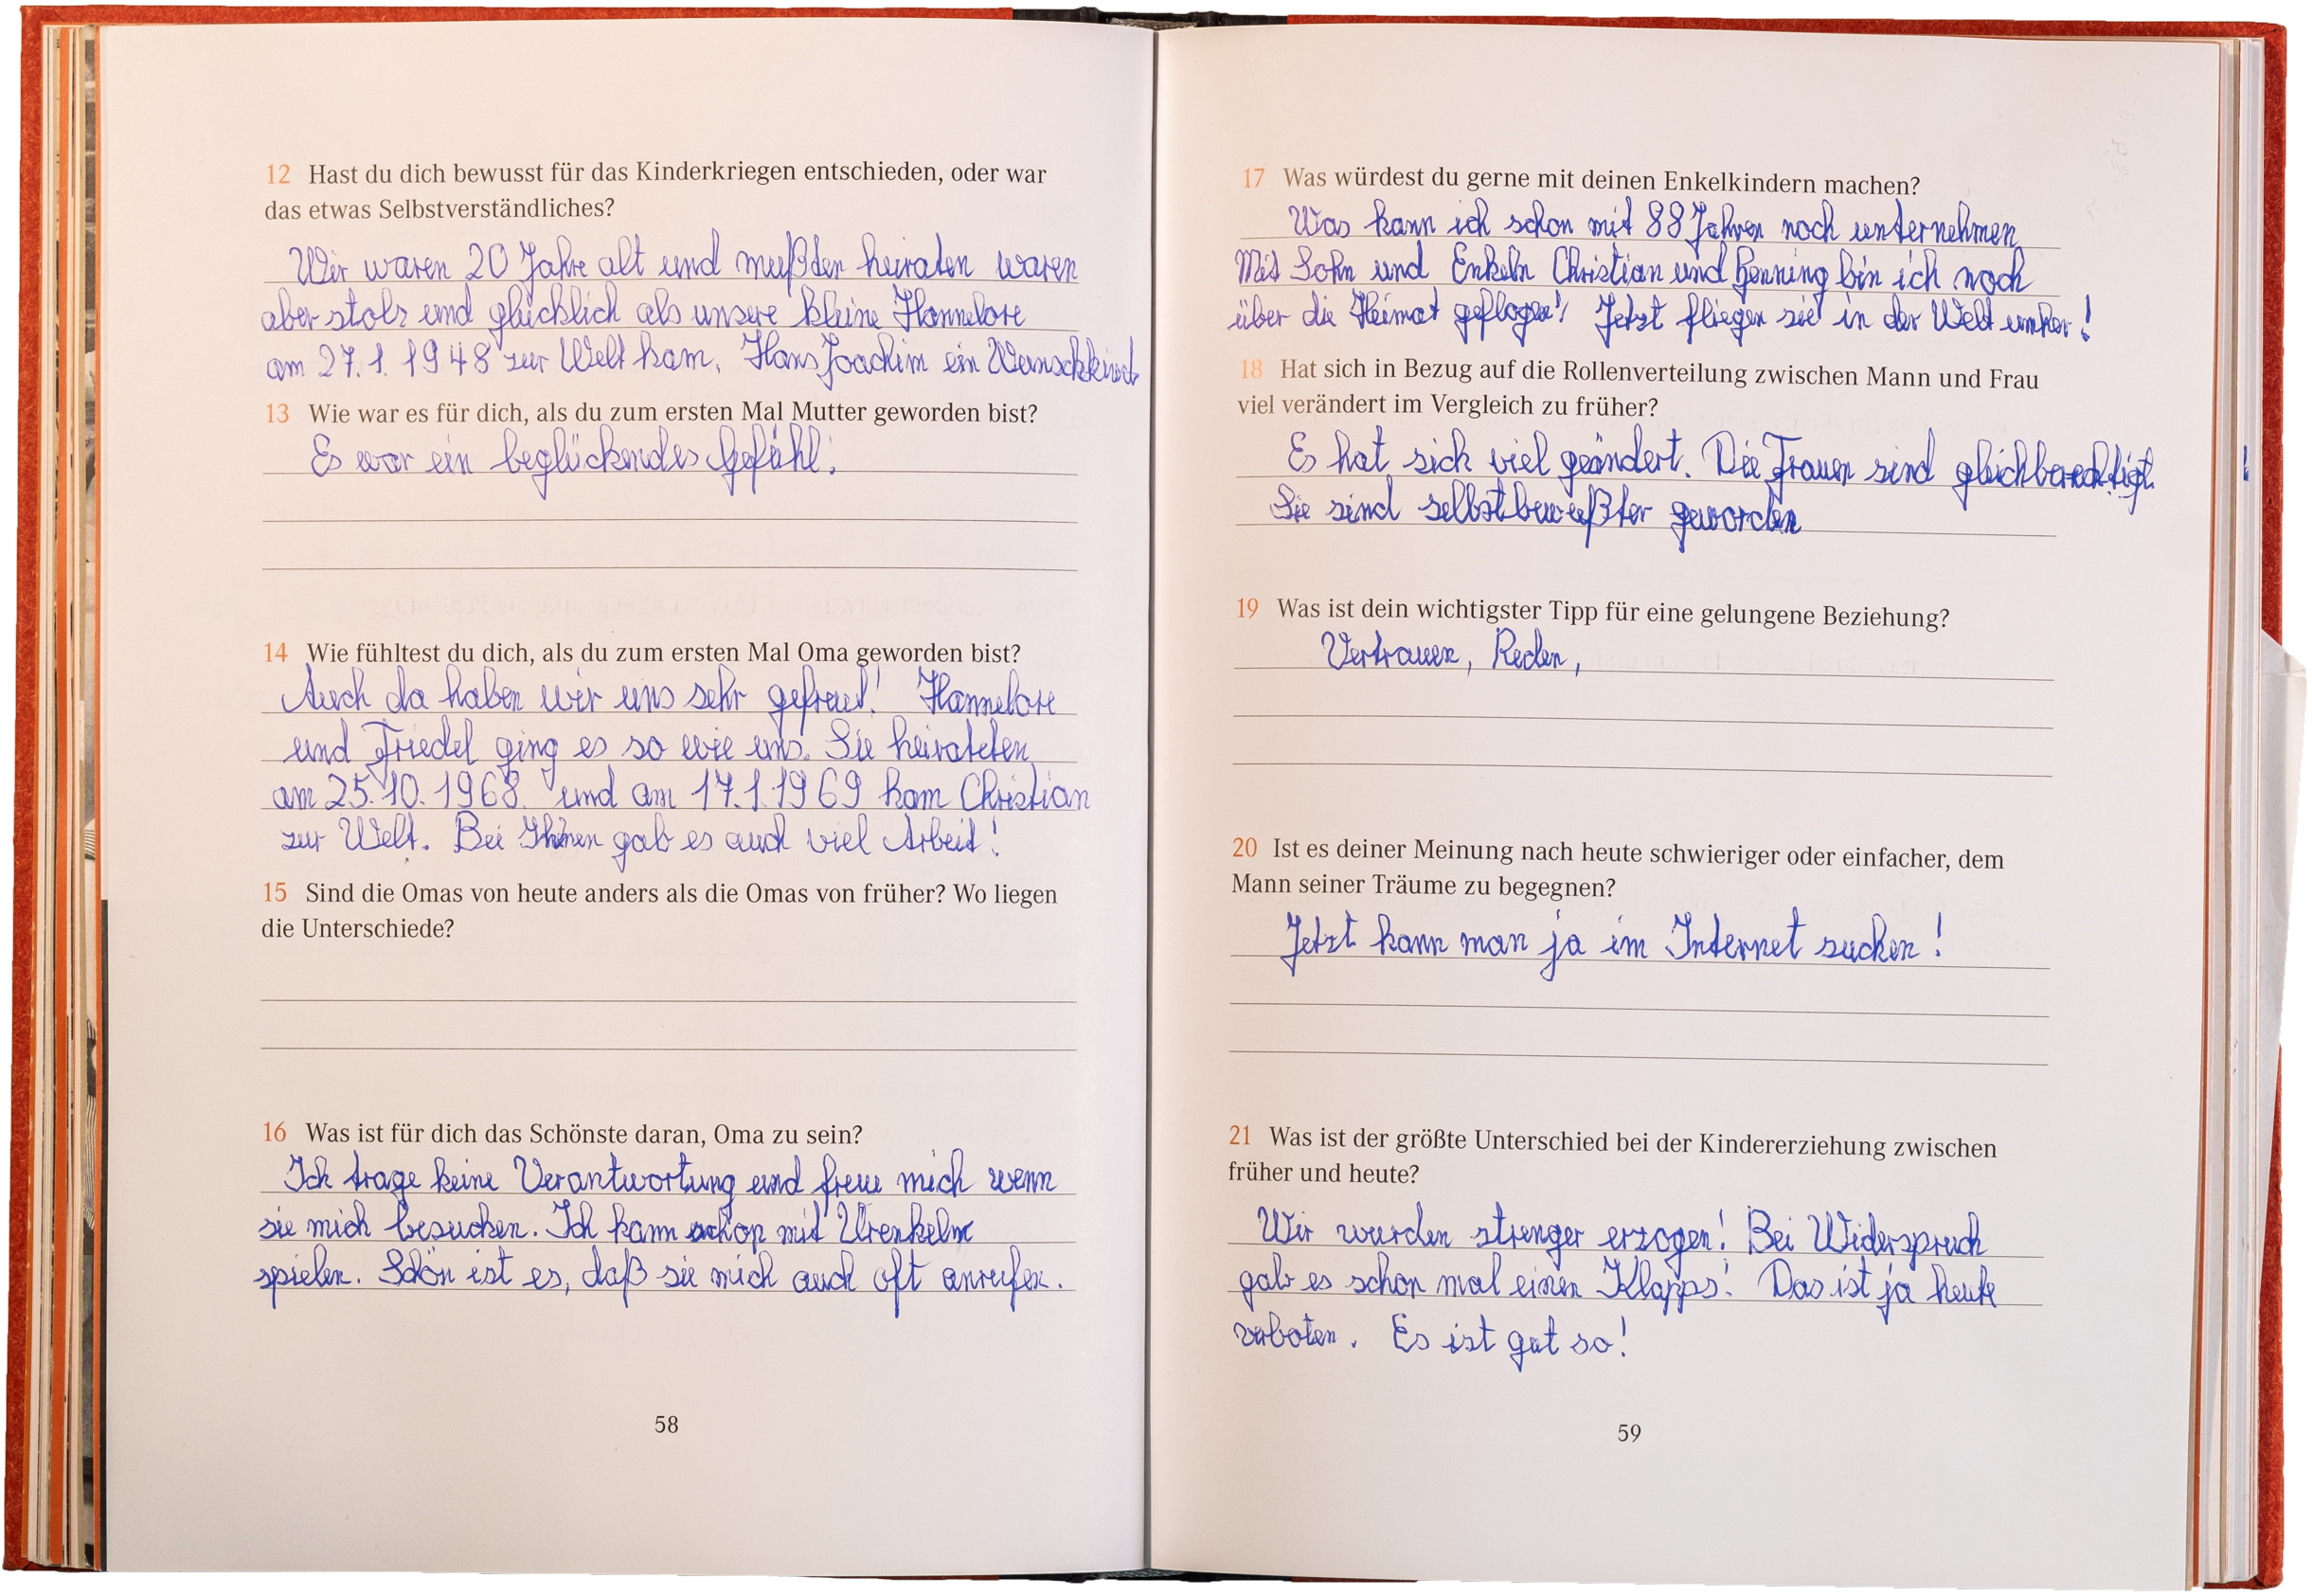 12 Hast du dich bewusst für das Kinderkriegen entschieden, oder war
das etwas Selbstverständliches?
Wir waren 20 Jahre alt und mußten heiraten waren
aber stolz und glücklich als unsere kleine Hannelore
am 27.1.1948 zur Welt kam. Hans Joachim ein Wunschkind
13 Wie war es für dich, als du zum ersten Mal Mutter geworden bist?
Es war ein beglückendes Gefühl!
14 Wie fühltest du dich, als du zum ersten Mal Oma geworden bist?
Auch da haben wir uns sehr gefreut! Hannelore
und Friedel ging es so wie uns. Sie heirateten
am 25.10.1968. und am 17.1.1969 kam Christian
zur Welt. Bei Ihnen gab es auch viel Arbeit!
15 Sind die Omas von heute anders als die Omas von früher? Wo liegen
die Unterschiede?
16 Was ist für dich das Schönste daran, Oma zu sein?
Ich trage keine Verantwortung und freue mich wenn
sie mich besuchen. Ich kann schon mit Urenkeln
spielen. Schön ist es, daß sie mich auch oft anrufen.
58
17 Was würdest du gerne mit deinen Enkelkindern machen?
Was kann ich schon mit 88 Jahren noch unternehmen
Mit Sohn und Enkeln Christian und Henning bin ich noch
über die Heimat geflogen! Jetzt fliegen sie in der Welt umher!
18 Hat sich in Bezug auf die Rollenverteilung zwischen Mann und Frau
viel verändert im Vergleich zu früher?
Es hat sich viel geändert. Die Frauen sind gleichberechtigt !
Sie sind selbstbewußter geworden
19 Was ist dein wichtigster Tipp für eine gelungene Beziehung?
Vertrauen, Reden,
20 Ist es deiner Meinung nach heute schwieriger oder einfacher, dem
Mann seiner Träume zu begegnen?
Jetzt kann man ja im Internet suchen!
21 Was ist der größte Unterschied bei der Kindererziehung zwischen
früher und heute?
Wir wurden strenger erzogen! Bei Widerspruch
gab es schon mal einen Klapps! Das ist ja heute
verboten. Es ist gut so!
59